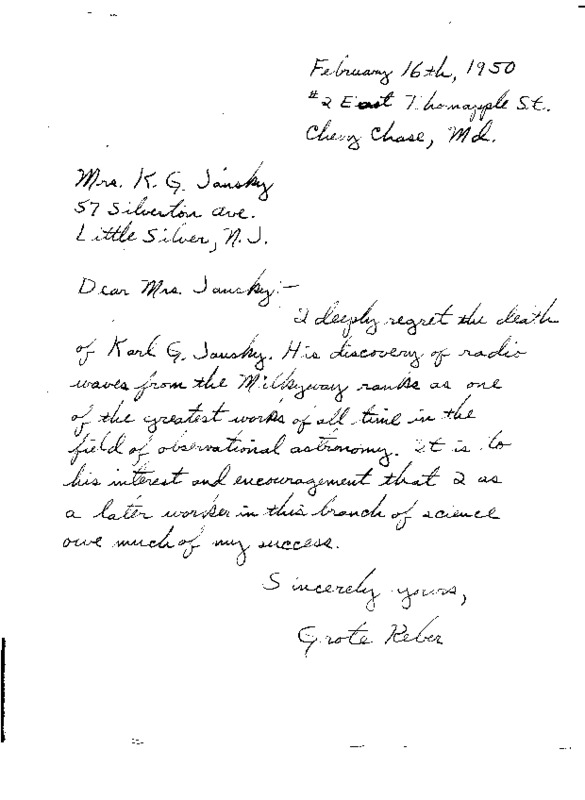 February 16th, 1950
#2 East Thornapple St.
Chevy Chase, Md.
Mrs. K. G. Jansky
57 Silverton Ave.
Little Silver, N.J.
Dear Mrs. Jansky:-
I deeply regret the death
of Karl G. Jansky. His discovery of radio
waves from the Milkyway ranks as one
of the greatest works of all time in the
field of observational astronomy. It is to
his interest and encouragement that I as
a later worker in this branch of science
owe much of my success.
Sincerely yours,
Grote Reber